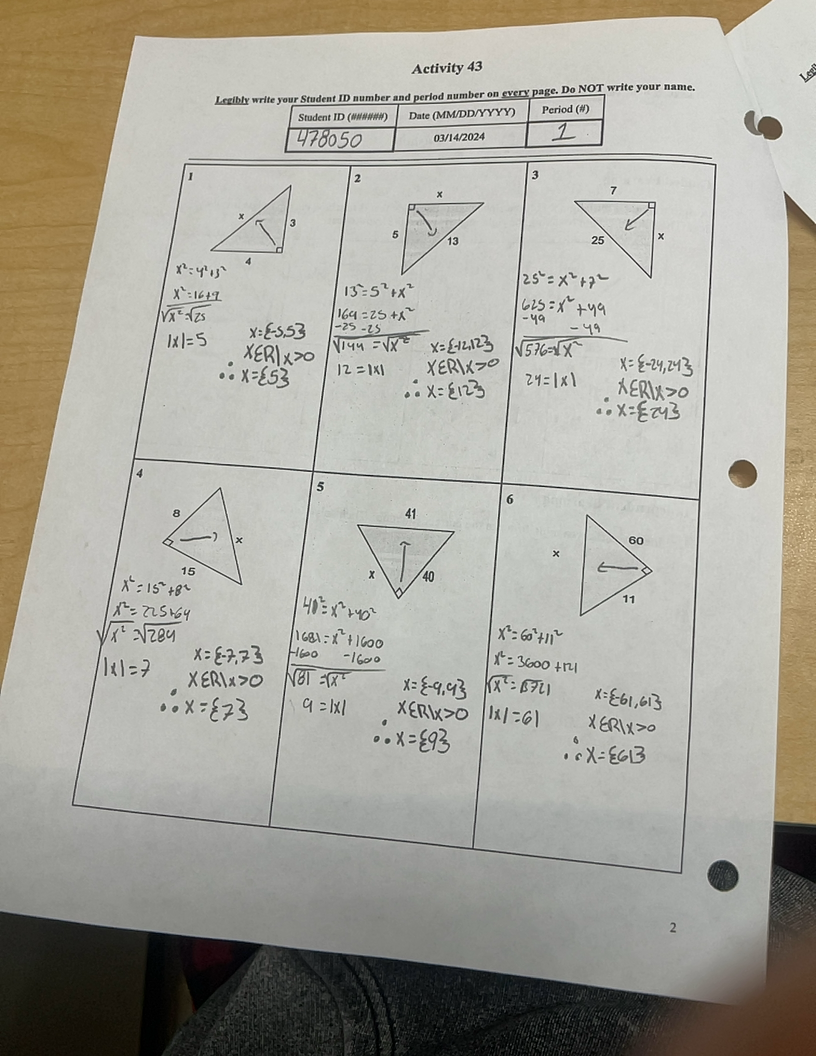 Activity 43
Legibly write your Student ID number and period number on every page. Do NOT write your name.
Student ID (######) Date (MM/DD/YYYY) Period (#)
478050 03/14/2024 1
1
x
3
4
x²=4²+3²
x²=16+9
√x²=√25
|x|=5
x={-5,5}
XER|x>0
∴ x={5}
2
x
5
13
13²=5²+x²
169=25+x²
-25 -25
√144=√x²
12=|x|
x={-12,12}
XER|x>0
∴ x={12}
3
7
25
x
25²=x²+7²
625=x²+49
-49 -49
√576=√x²
24=|x|
x={-24,24}
XER|x>0
∴ x={24}
4
8
x
15
x²=15²+8²
x²=225+64
√x²=√289
|x|=7
x={-7,7}
XER|x>0
∴ x={7}
5
41
x
40
40²=x²+40²
1681=x²+1600
-1600 -1600
√81=√x²
9=|x|
x={-9,9}
XER|x>0
∴ x={9}
6
60
x
11
x²=60²+11²
x²=3600+121
√x²=√3721
|x|=61
x={-61,61}
XER|x>0
∴ x={61}
2